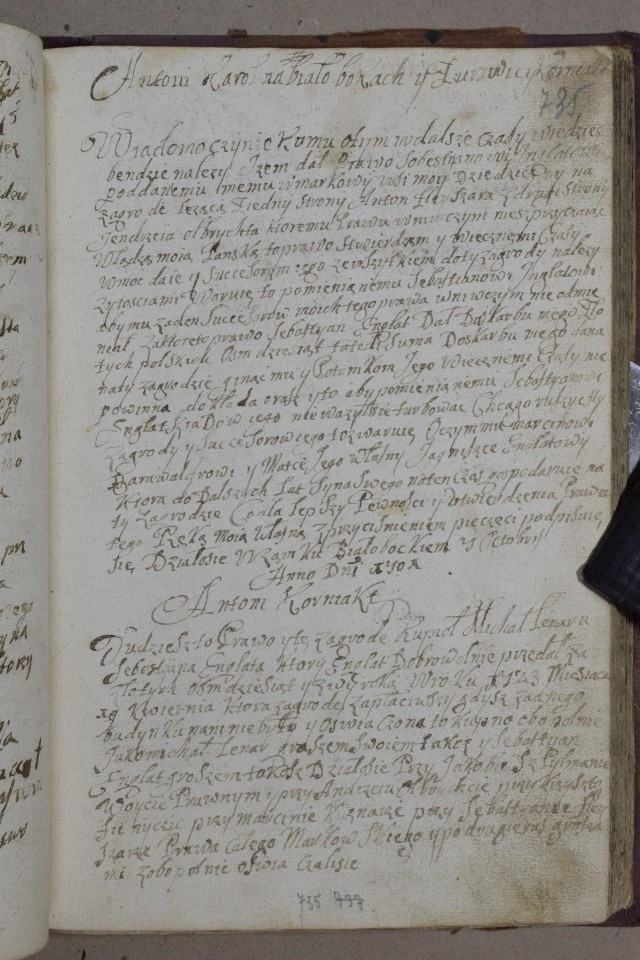 Antoni Karol na białobokach y Zurawiczkach Korniakt
735
Wiadomo czynię Komu otym wdalsze czasy wiedziec
bendzie nalezy Izem dał Prawo Sobestyanowi Englatowi
poddanemu memu wmarkowy wsi moiy Dziedziczny na
zagrode Lezącą Ziedny strony Anton Fleyszara Zdrugi strony
Jendrzeia olbrychta ktoremu Prawu wniwczym nieszprzyciwiaiąc
Władzą moią Panską to prawo stwierdzam y wiecznemi Czasy
wmoc daie y Succesorum iego zewszytkiem do ty zagrody należy
zytosciami Waruię to pomienianemu Sebastianowi Inglatowi
aby mu zaden Succesorow moich tego prawa wniwczym nie odmie
niał Zaktore to prawo Sebastyan Englat Dał Doskarbu mego Zło
tych polskich Osm dziesiąt tate Suma Doskarbu niego dana
naty zagrodzie ginąc mu y Potomkom Jego Wiecznemi Czasy nie
powinna dokłada oraz yto aby pomienianemu Sebastyanowi
Englat Sziadow iego nie wazył sie turbowac Chcąc go ruszyc Sty
zagrody y Succesorow iego toz waruię Oczymmu marcinowi
y Matce Jego własny Jagniszce Englatowy
Ktora do Dalszych Lat Syna Swego naten Czas gospodaruie na
ty Zagrodzie Co dla lepszy Pewnosci y Utwierdzenia Prawa
tego Ręką moią własną zprzycisnieniem pięczęci podpisuię
się Działosie w Zamku Białobockiem Octobris
Anno Dni 1701
Antoni Korniakt
Tudziesz to Prawo y tę zagrode Kupieł Michał Lenaru
Sebestiana Englata ktory Englat Dobrowolnie przedał za
złotych osmdziesiąt Wroku 1723 Miesiąca
19 Kwietnia ktora zagrode zapłaciwszy gdysz zadnego
budynku naninie było y Oswiaczona to kupno obopolnie
Jako michał Lenar groszem Swoiem takze y Sebastyan
Englat groszem tokosz Działosie Przy Jakobie Szpytmanie
Woycie Prawnym y przy Andrzeiu Olbrychcie przy Krzysto
przy marcinie Kisnarze przy Sebastyanie Fley
szarze Prawa całego Markowskiego y podrugiemi grosza
mi zobopolnie oswiaczalisie
735 737